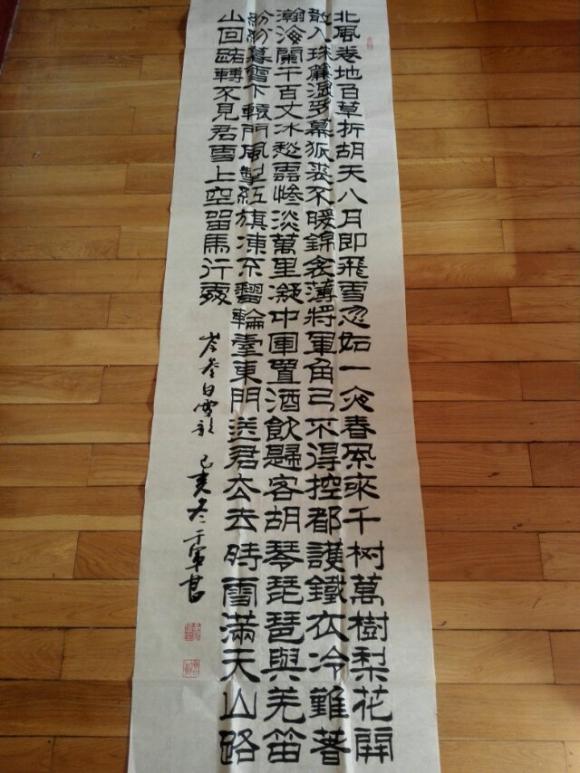 北風卷地百草折胡天八月即飛雪忽如一夜春風來千树萬樹梨花開
散入珠簾濕羅幕狐裘不暖錦衾薄將軍角弓不得控都護鐵衣冷難著
瀚海闌干百丈冰愁雲慘淡萬里凝中軍置酒飲歸客胡琴琵琶與羌笛
紛紛暮雪下轅門風掣紅旗凍不翻輪臺東門送君去去時雪滿天山路
山回路轉不見君雪上空留馬行處
岑参白雪歌 己亥冬于军书